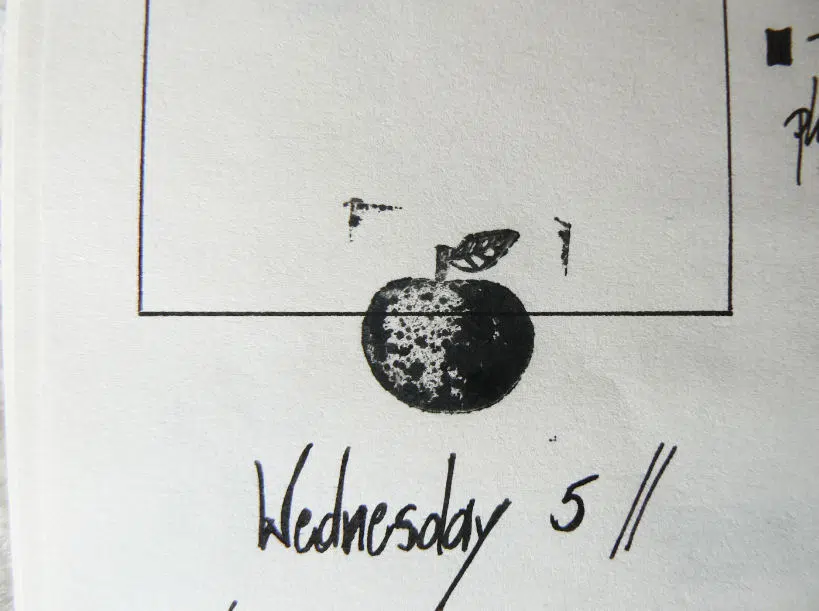 Wednesday 5 //